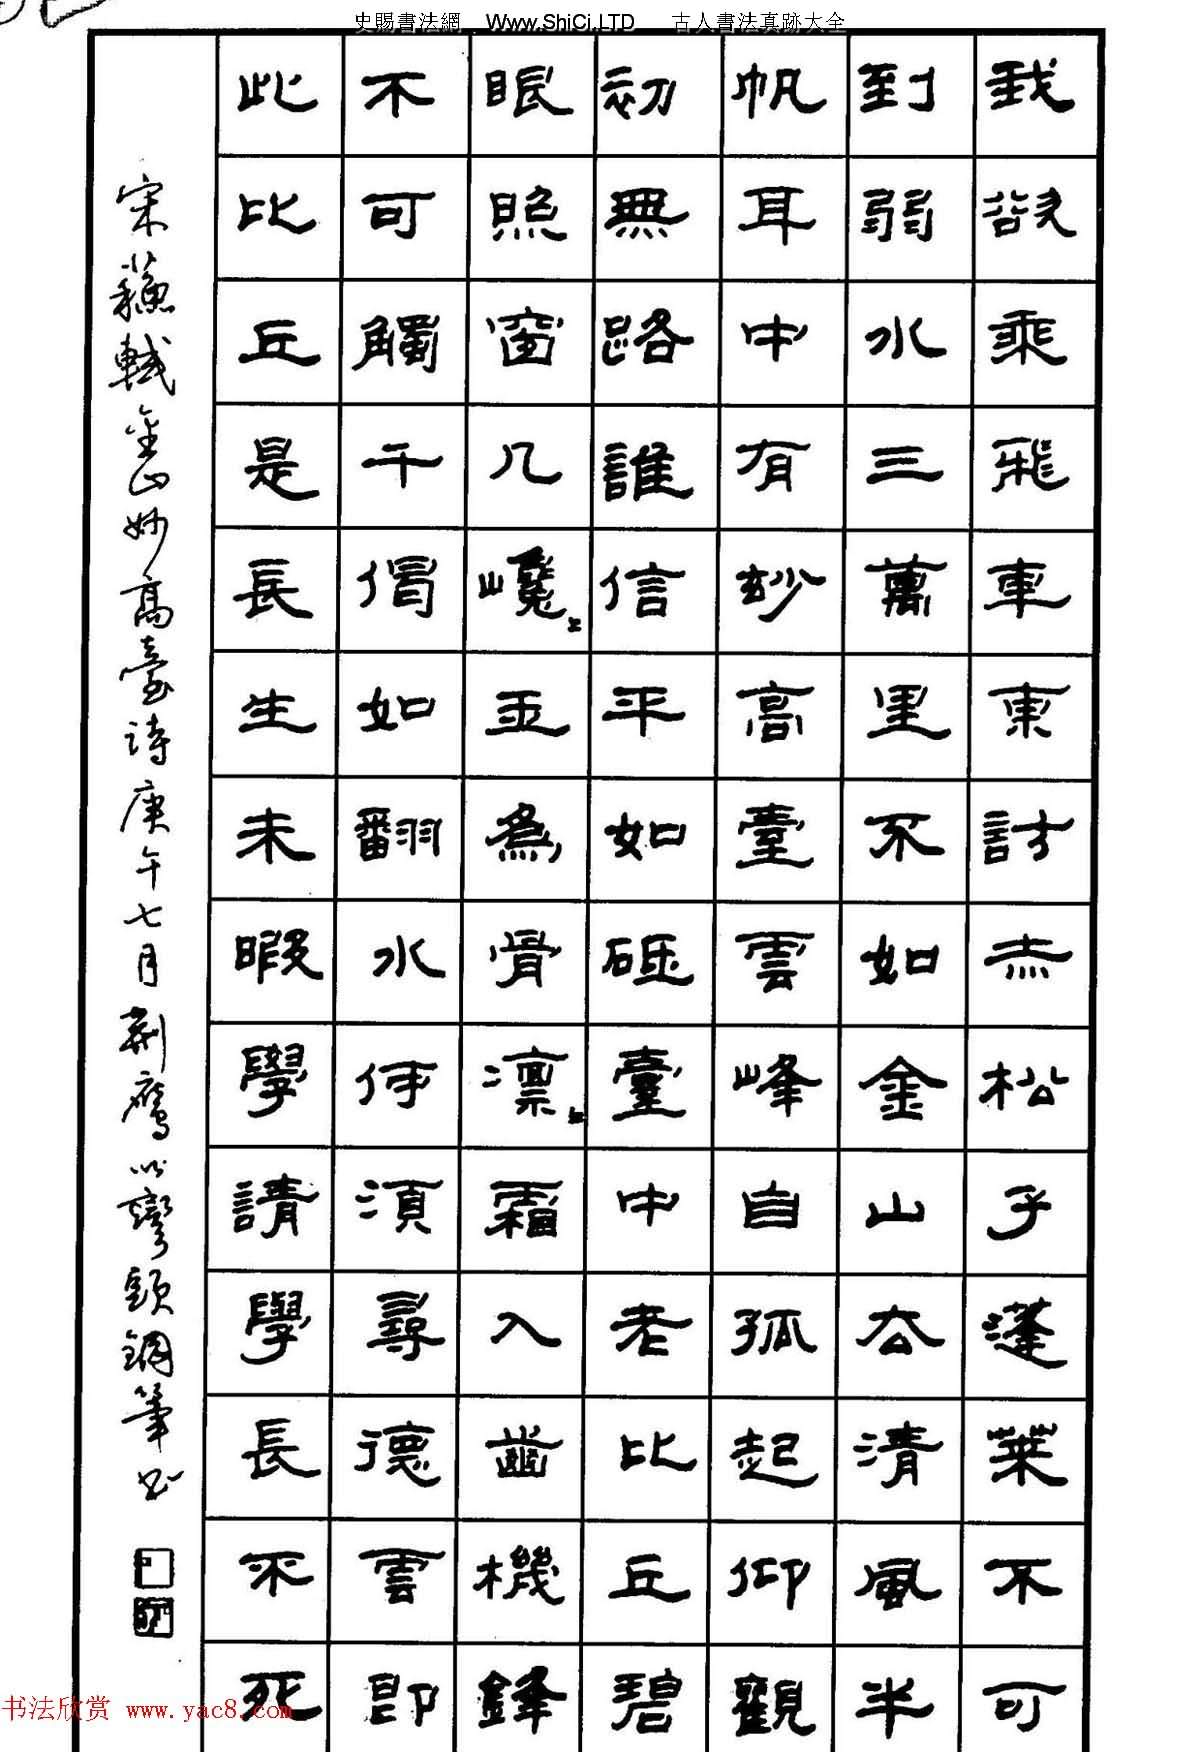 史賜書法網 Www.ShiCi.LTD 古人書法真跡大全
我欲乘飛車東訪赤松子蓬萊不可
到弱水三萬里不如金山去清風半
帆耳中有妙高臺雲峰自孤起仰觀
初無路誰信平如砥臺中老比丘碧
眼照窗几巉〻玉為骨凜〻霜入齒機鋒
不可觸千偈如翻水何須尋德雲即
此比丘是長生未暇學請學長不死
宋蘇軾金山妙高臺詩庚午七月荊鷹以彎頭鋼筆書
书法欣赏 www.yac8.com